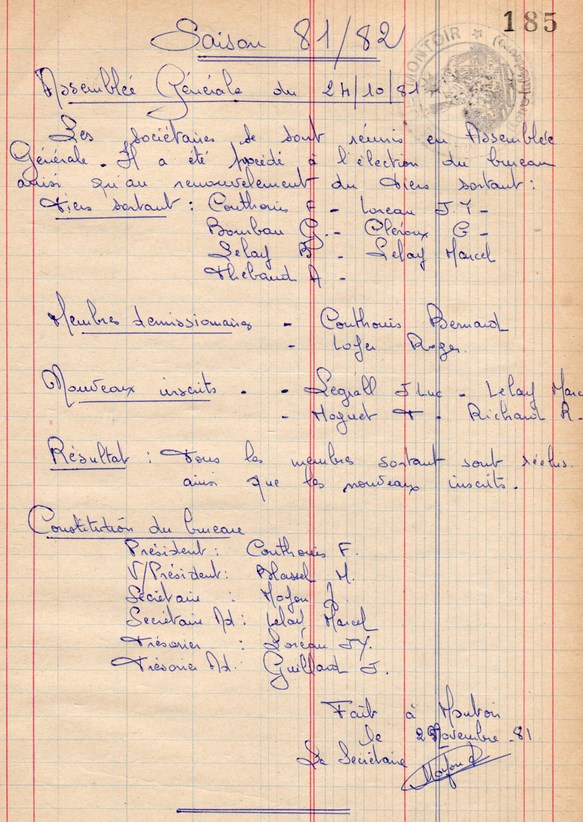 185
MONTOIR
Saison 81/82
Assemblée Générale du 24/10/81
Les sociétaires se sont réunis en Assemblée
Générale. Il a été procédé à l'élection du bureau
ainsi qu'au renouvelement du tiers sortant :
Tiers sortant : Couthouis F - Loreau J.Y -
Bourbau G. - Cléroux G -
Lelay B - Lelay Marcel
Thebaud A -
Membres demissionaires - Couthouis Bernard
- Roger
Nouveaux inscrits - - Legrall J Luc - Lelay Marc
- Hoguet T - Richard R -
Résultat : Tous les membres sortant sont réélus
ainsi que les nouveaux inscrits.
Constitution du bureau
Président : Couthouis F.
V/Président : Blassel M.
Secrétaire : Moyon J.
Secrétaire Ad : Lelay Marcel
Trésorier : Loréau JY.
Trésorier Ad. Guillard J.
Fait à Montoir
le 2 Novembre 81
Le Secrétaire